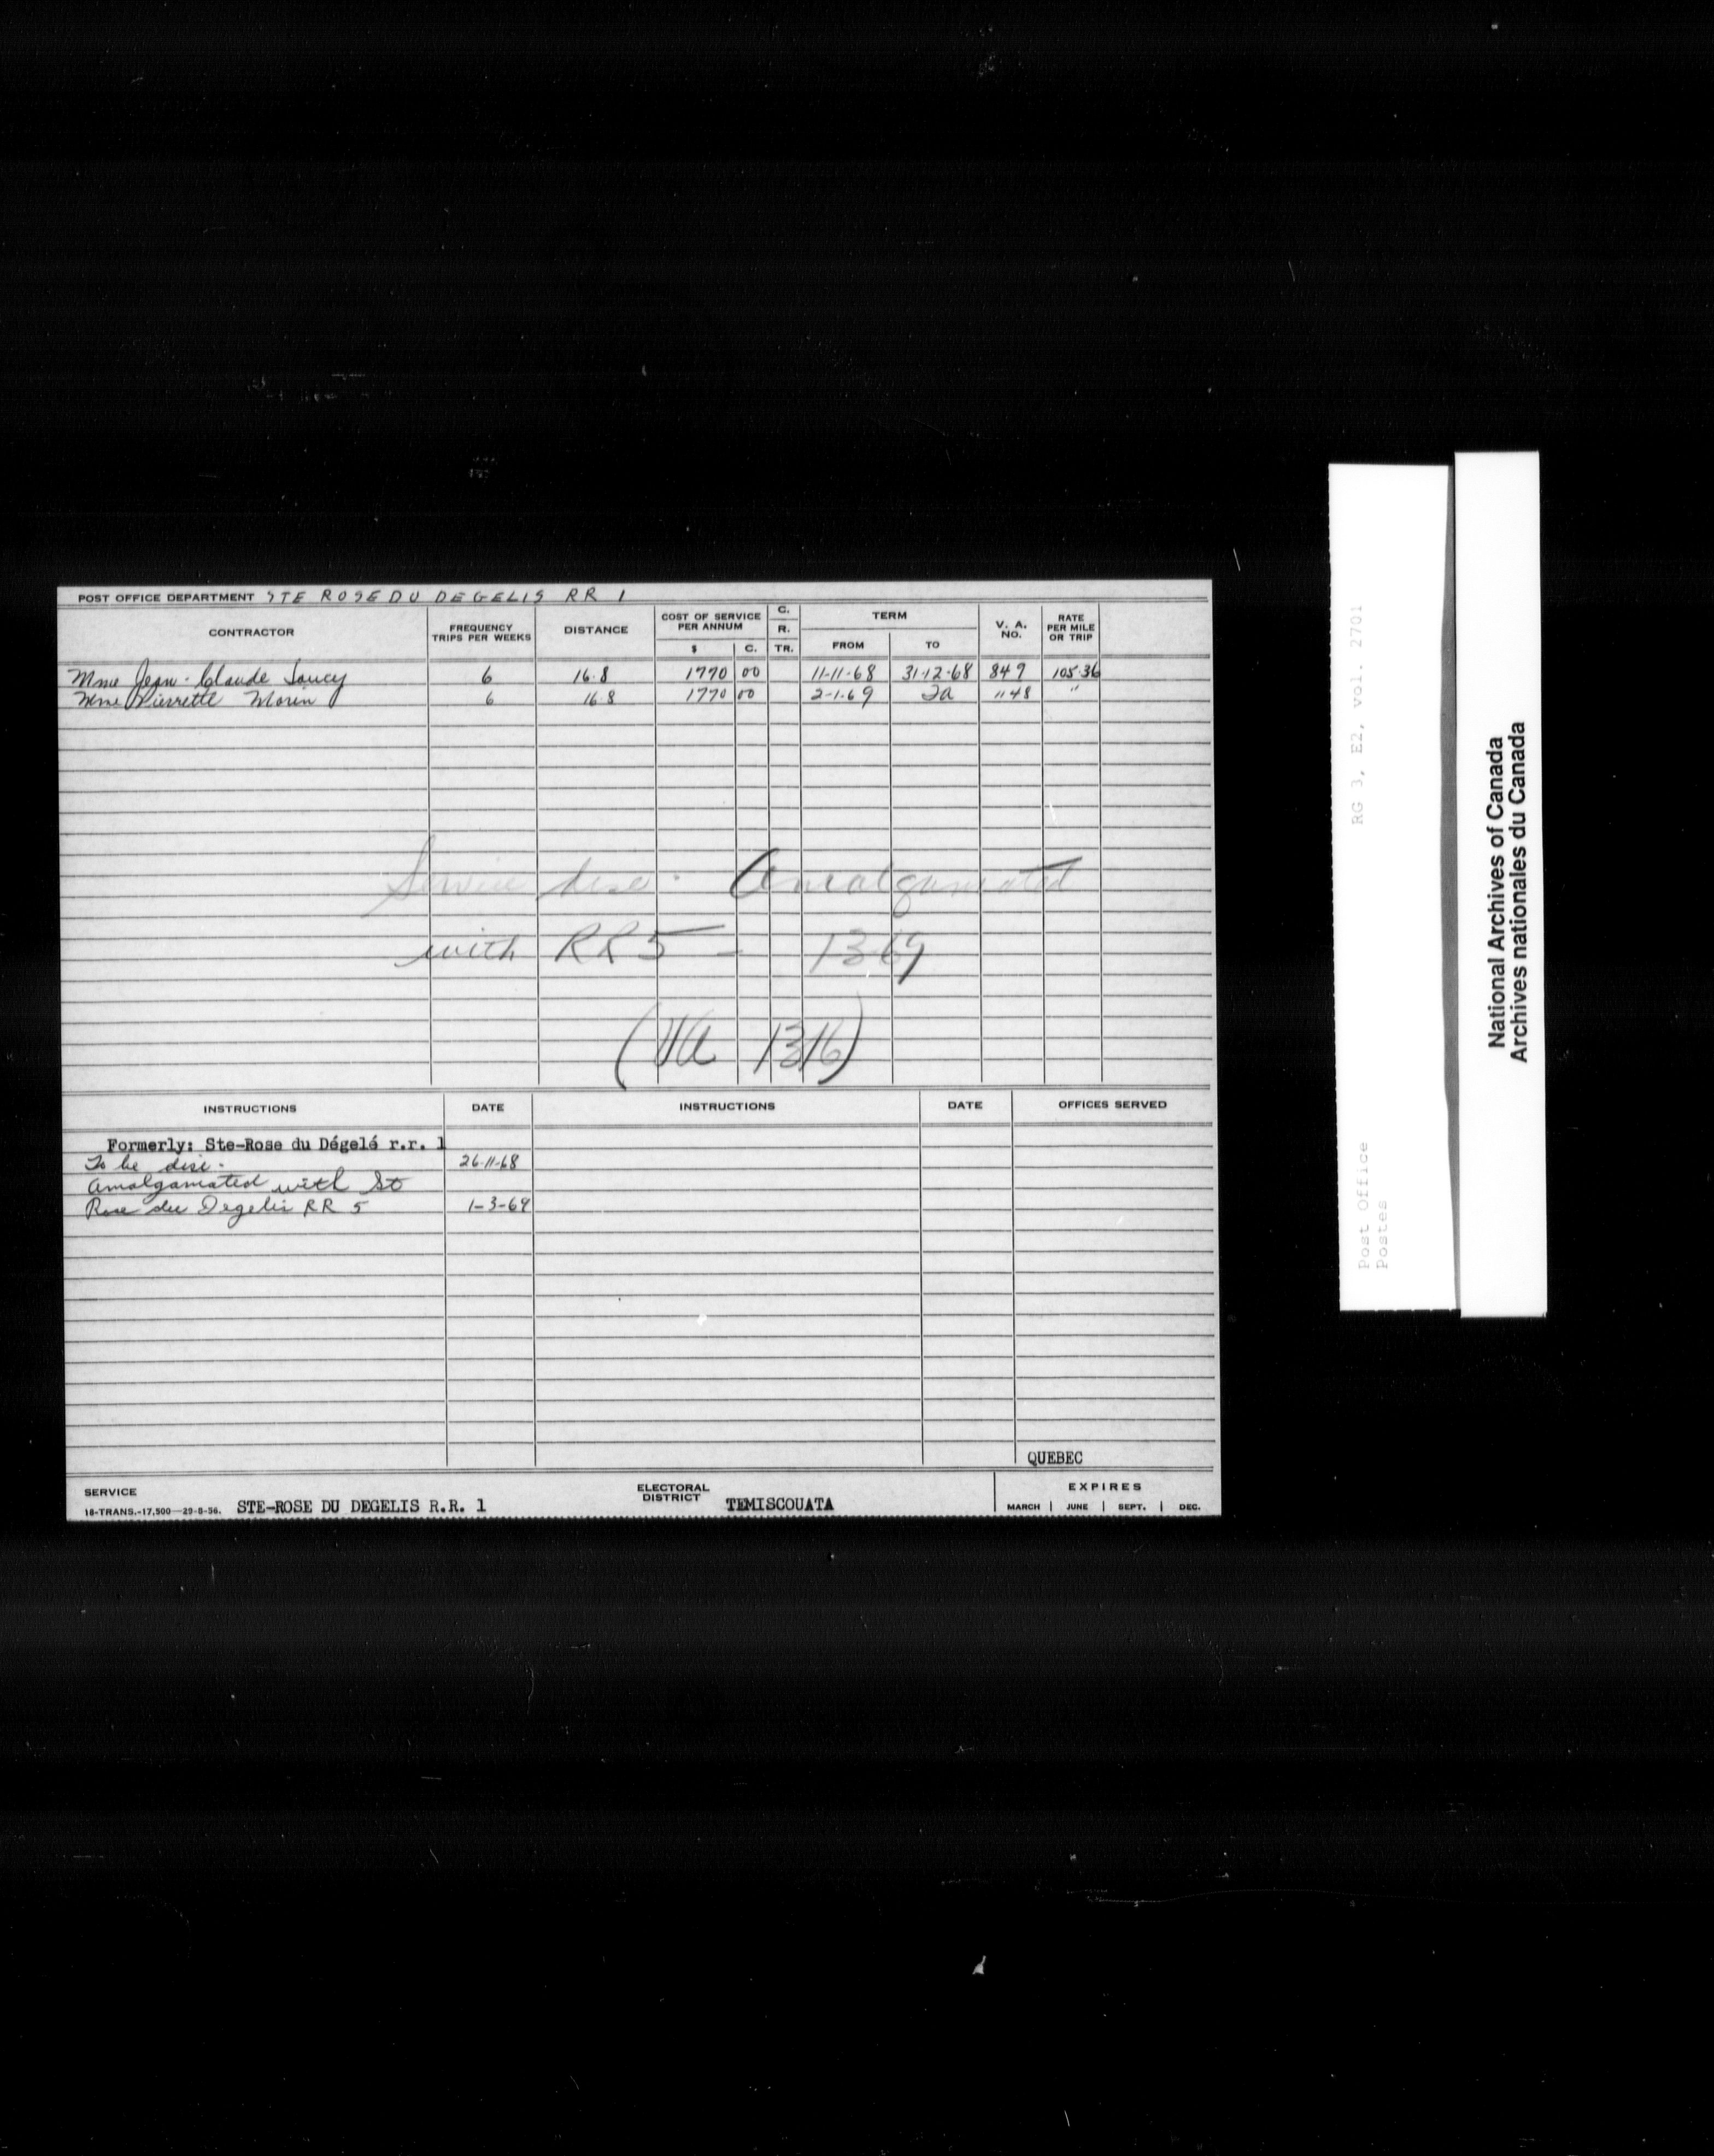 POST OFFICE DEPARTMENT STE ROSE DU DEGELIS RR 1
CONTRACTOR FREQUENCY TRIPS PER WEEKS DISTANCE COST OF SERVICE PER ANNUM $ C. C. R. TR. TERM FROM TO V. A. NO. RATE PER MILE OR TRIP
Mme Jean-Claude Soucy 6 16.8 1770 00 11-11-68 31-12-68 849 105.36
Mme Pierrette Morin 6 16.8 1770 00 2-1-69 1148 "
Service disc. Amalgamated
with RR 5 - 1369
(VA 1316)
INSTRUCTIONS DATE INSTRUCTIONS DATE OFFICES SERVED
Formerly: Ste-Rose du Dégelé r.r. 1
To be disc. 26-11-68
Amalgamated with St
Rose du Degelis RR 5 1-3-69
QUEBEC
SERVICE
18-TRANS.-17,500—29-8-56. STE-ROSE DU DEGELIS R.R. 1 ELECTORAL DISTRICT TEMISCOUATA EXPIRES MARCH JUNE SEPT. DEC.
RG 3, E2, vol. 2701
Post Office
Postes
National Archives of Canada
Archives nationales du Canada